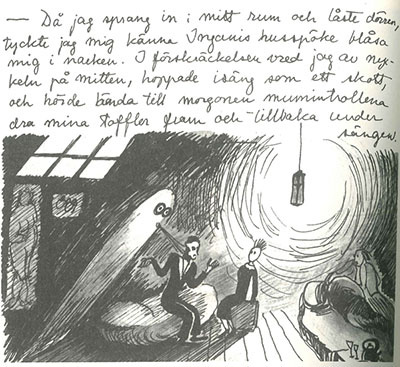 — Då jag sprang in i mitt rum och låste dörren,
tyckte jag mig känna Ingenis husspöke blåsa
mig i nacken. I förskräckelsen vred jag av ny-
keln på mitten, hoppade isäng som ett skott,
och hörde ända till morgonen mumintrollena
dra mina tofflor fram och tillbaka under
sängen.